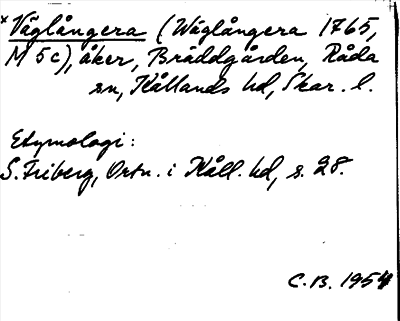 * Väglångera (Wäglångera 1765,
M 5c), åker, Bräddgården, Råda
sn, Kållands hd, Skar. l.
Etymologi:
S. Friberg, Ortn. i Kåll. hd, s. 28.
C.B. 1954